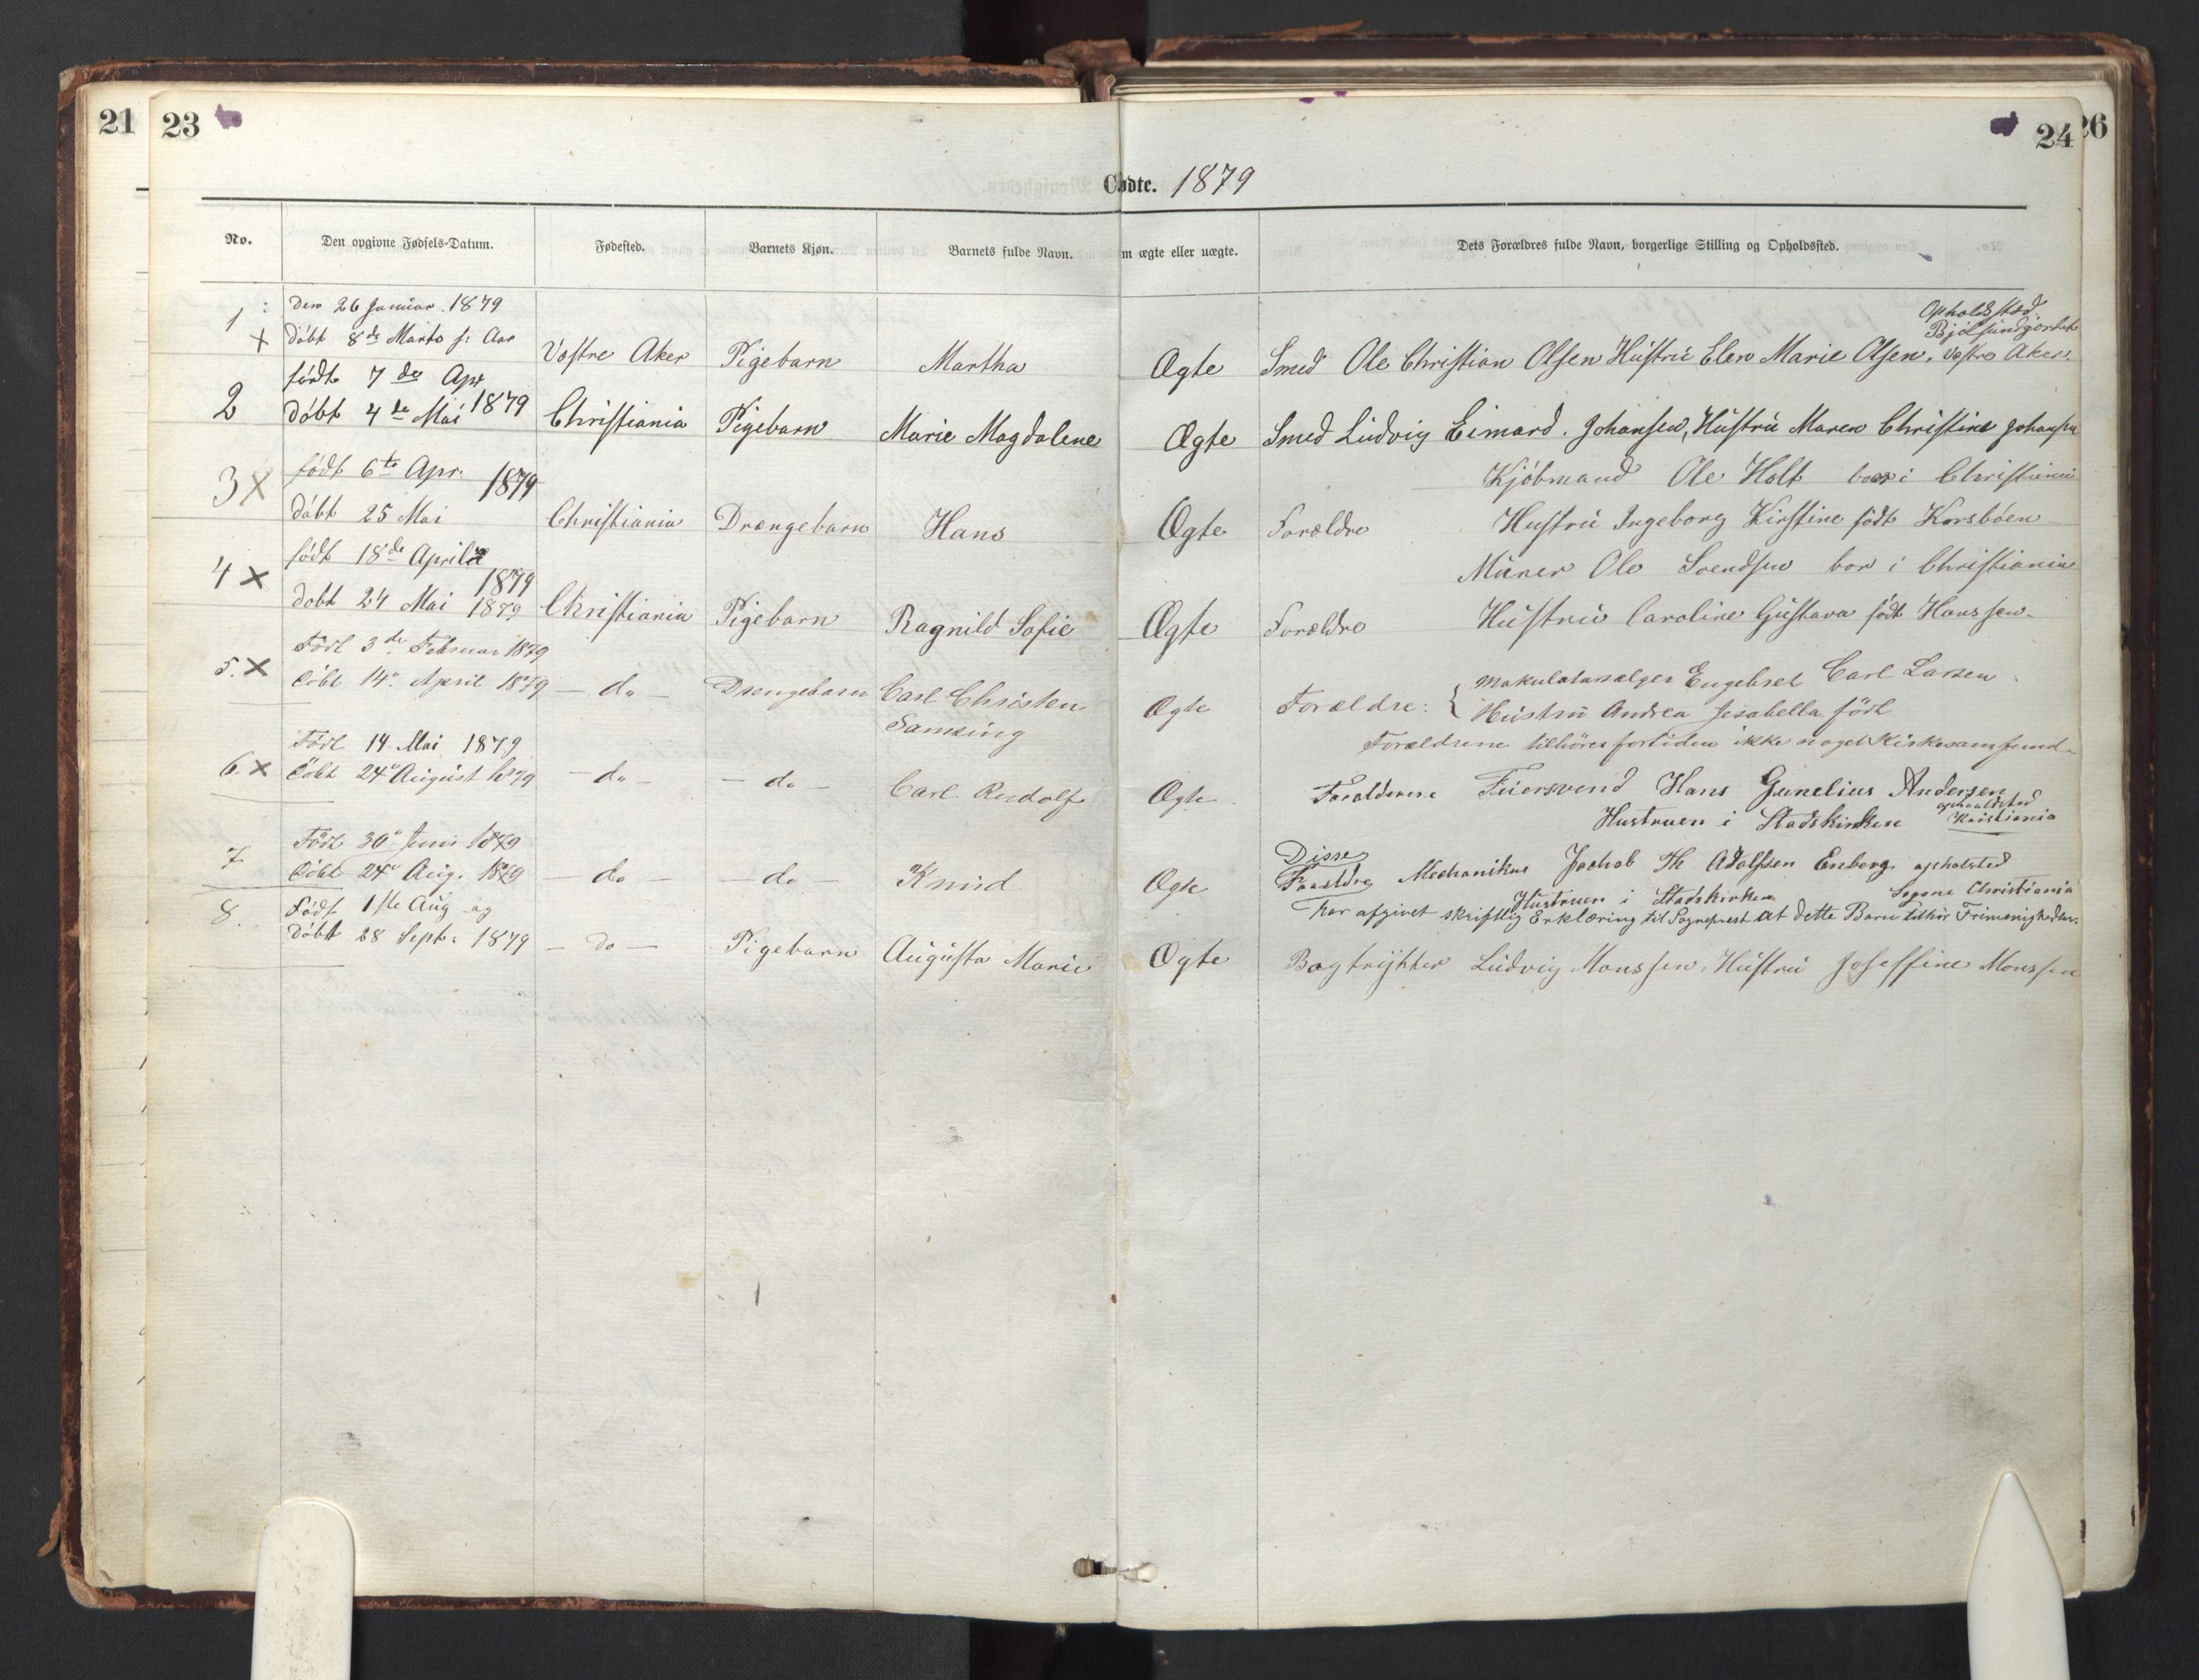 21 23
24 26
Fødte. 1879
No. Den opgivne Fødsels-Datum. Fødested. Barnets Kjøn. Barnets fulde Navn. m ægte eller uægte. Dets Forældres fulde Navn, borgerlige Stilling og Opholdssted.
1 Den 26 Januar 1879
X Døbt 8de Marts s: Aar Vestre Aker Pigebarn Martha Ægte Smed Ole Christian Olsen Hustru Elen Marie Olsen, Vestre Aker.
Opholdssted.
født 7de Apr
2 Døbt 4de Mai 1879 Christiania Pigebarn Marie Magdalene Ægte Smed Ludvig Eimard. Johansen, Hustru Maren Christine Johansen
3 X født 6te Apr. 1879 Kjøbmand Ole Holt bor i Christiania
døbt 25 Mai Christiania Drængebarn Hans Ægte Forældre Hustru Ingeborg Kirstine født Korsbøen
4 X født 18de April 1879 Murer Ole Svendsen bor i Christiania
døbt 24 Mai 1879 Christiania Pigebarn Ragnild Sofie Ægte Forældre Hustru Caroline Gustava født Hanssen
5. X Født 3de Februar 1879
Døbt 14de April 1879 – do – Drengebarn Carl Christen Samsing Ægte Forældre: { Makulatursælger Engebret Carl Larsen
Hustru Andrea Jesabella født
Forældrene tilhører fortiden ikke noget Kirkesamfund
Født 14 Mai 1879
6. X Døbt 24de August 1879 – do – – do – Carl Rudolf Ægte Forældrene Feiersvend Hans Gunelius Andersen
Hustruen i Stadskirken opholdsted Kristiania
7 Født 30te Juni 1879
Døbt 24de Aug. 1879 – do – – do – Knud Ægte Disse Forældre Mechanikus Jachob Th Adolfsen Enberg opholsted
Hustruen i Stadskirken Sogne Christiania
har afgivet skriftlig Erklæring til Sogneprest at dette Barn tilhør Frimenigheden.
8. Født 1ste Aug og
Døbt 28 Septr: 1879 – do – Pigebarn Augusta Marie Ægte Bogtrykker Ludvig Monssen, Hustru Joseffine Monssen